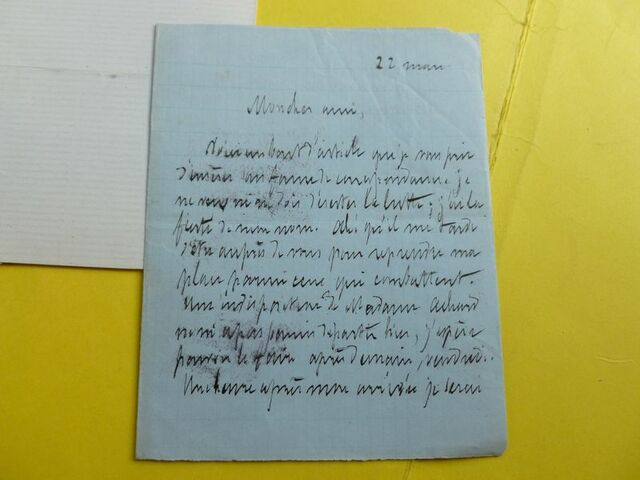 22 mars
Mon cher ami,
Voici un bout d'article que je vous prie
d'insérer en forme de correspondance. Je
ne veux ni ne dois déserter la lutte; j'ai la
fierté de mon nom. Ah! qu'il me tarde
d'être auprès de vous pour reprendre ma
place parmi ceux qui combattent.
Une indisposition de Madame Achard
ne m'a pas permis de partir hier, j'espère
pouvoir le faire après demain, vendredi.
Une heure après mon arrivée je serai